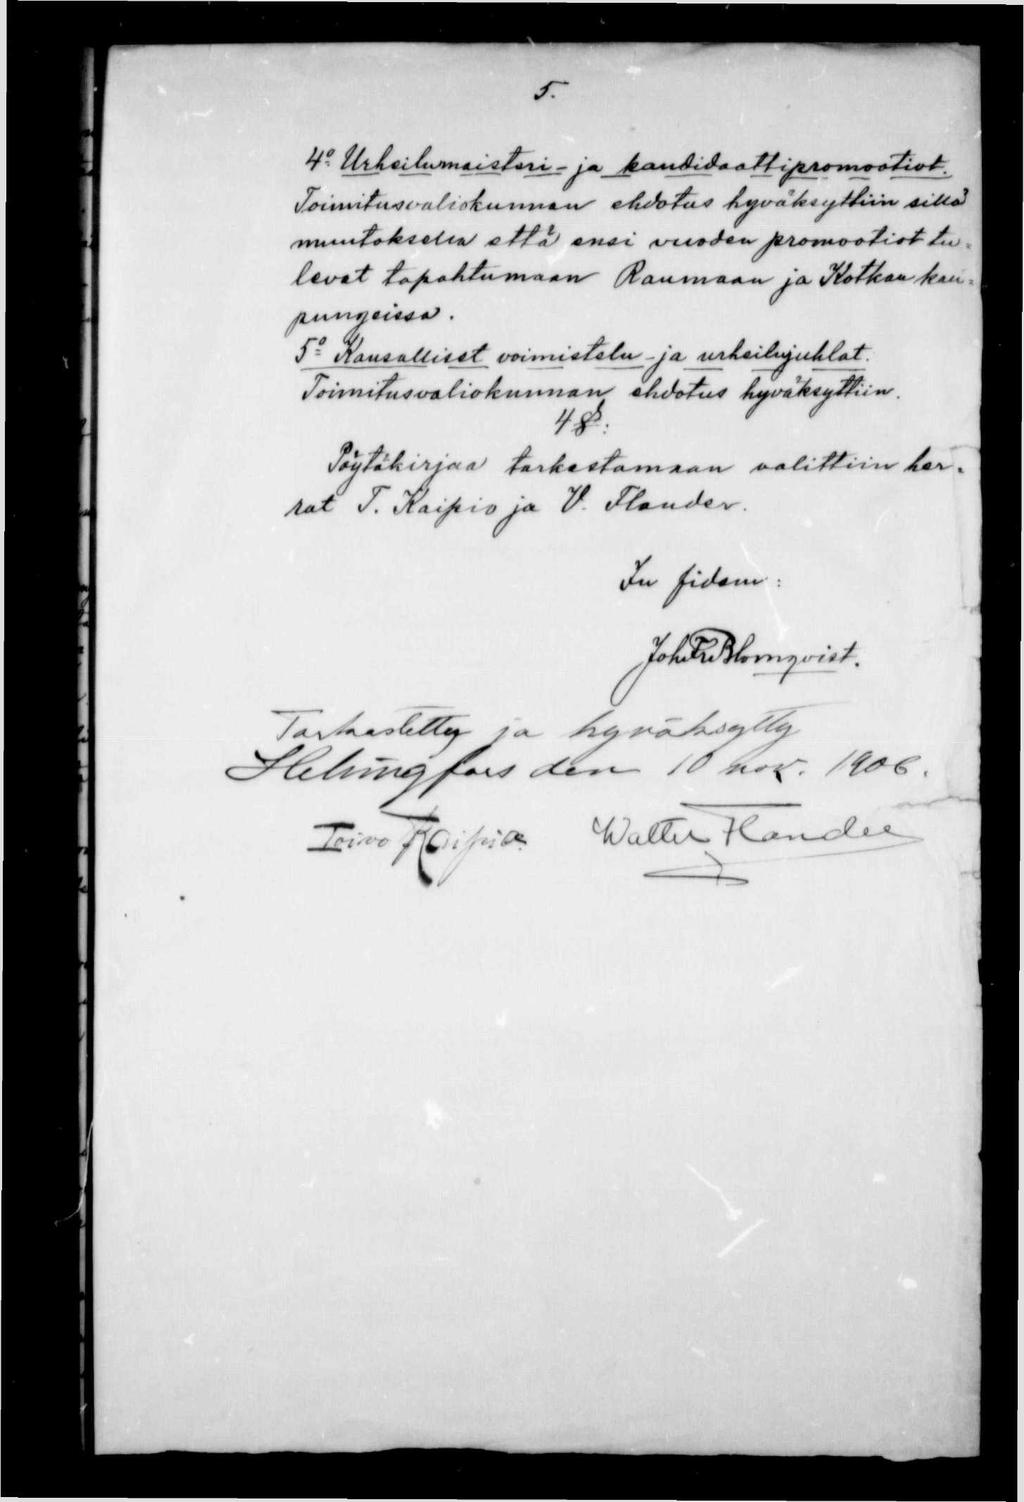 5.
4:o Urheilumaisteri- ja kandidaattipromootiot.
Toimitusvaliokunnan ehdotus hyväksyttiin sillä
muutoksella että ensi vuoden promootiot tu=
levat tapahtumaan Rauman ja Kotkan kau=
pungeissa.
5:o Kansalliset voimistelu- ja urheilujuhlat.
Toimitusvaliokunnan ehdotus hyväksyttiin.
4 §:
Pöytäkirjaa tarkastamaan valittiin her=
rat T. Kaipio ja V. Flander.
In fidem:
Joh. Fr. Blomqvist.
Tarkastettu ja hyväksytty
Helsingfors den 10 nov. 1906.
Toivo Kaipio. Walter Flander